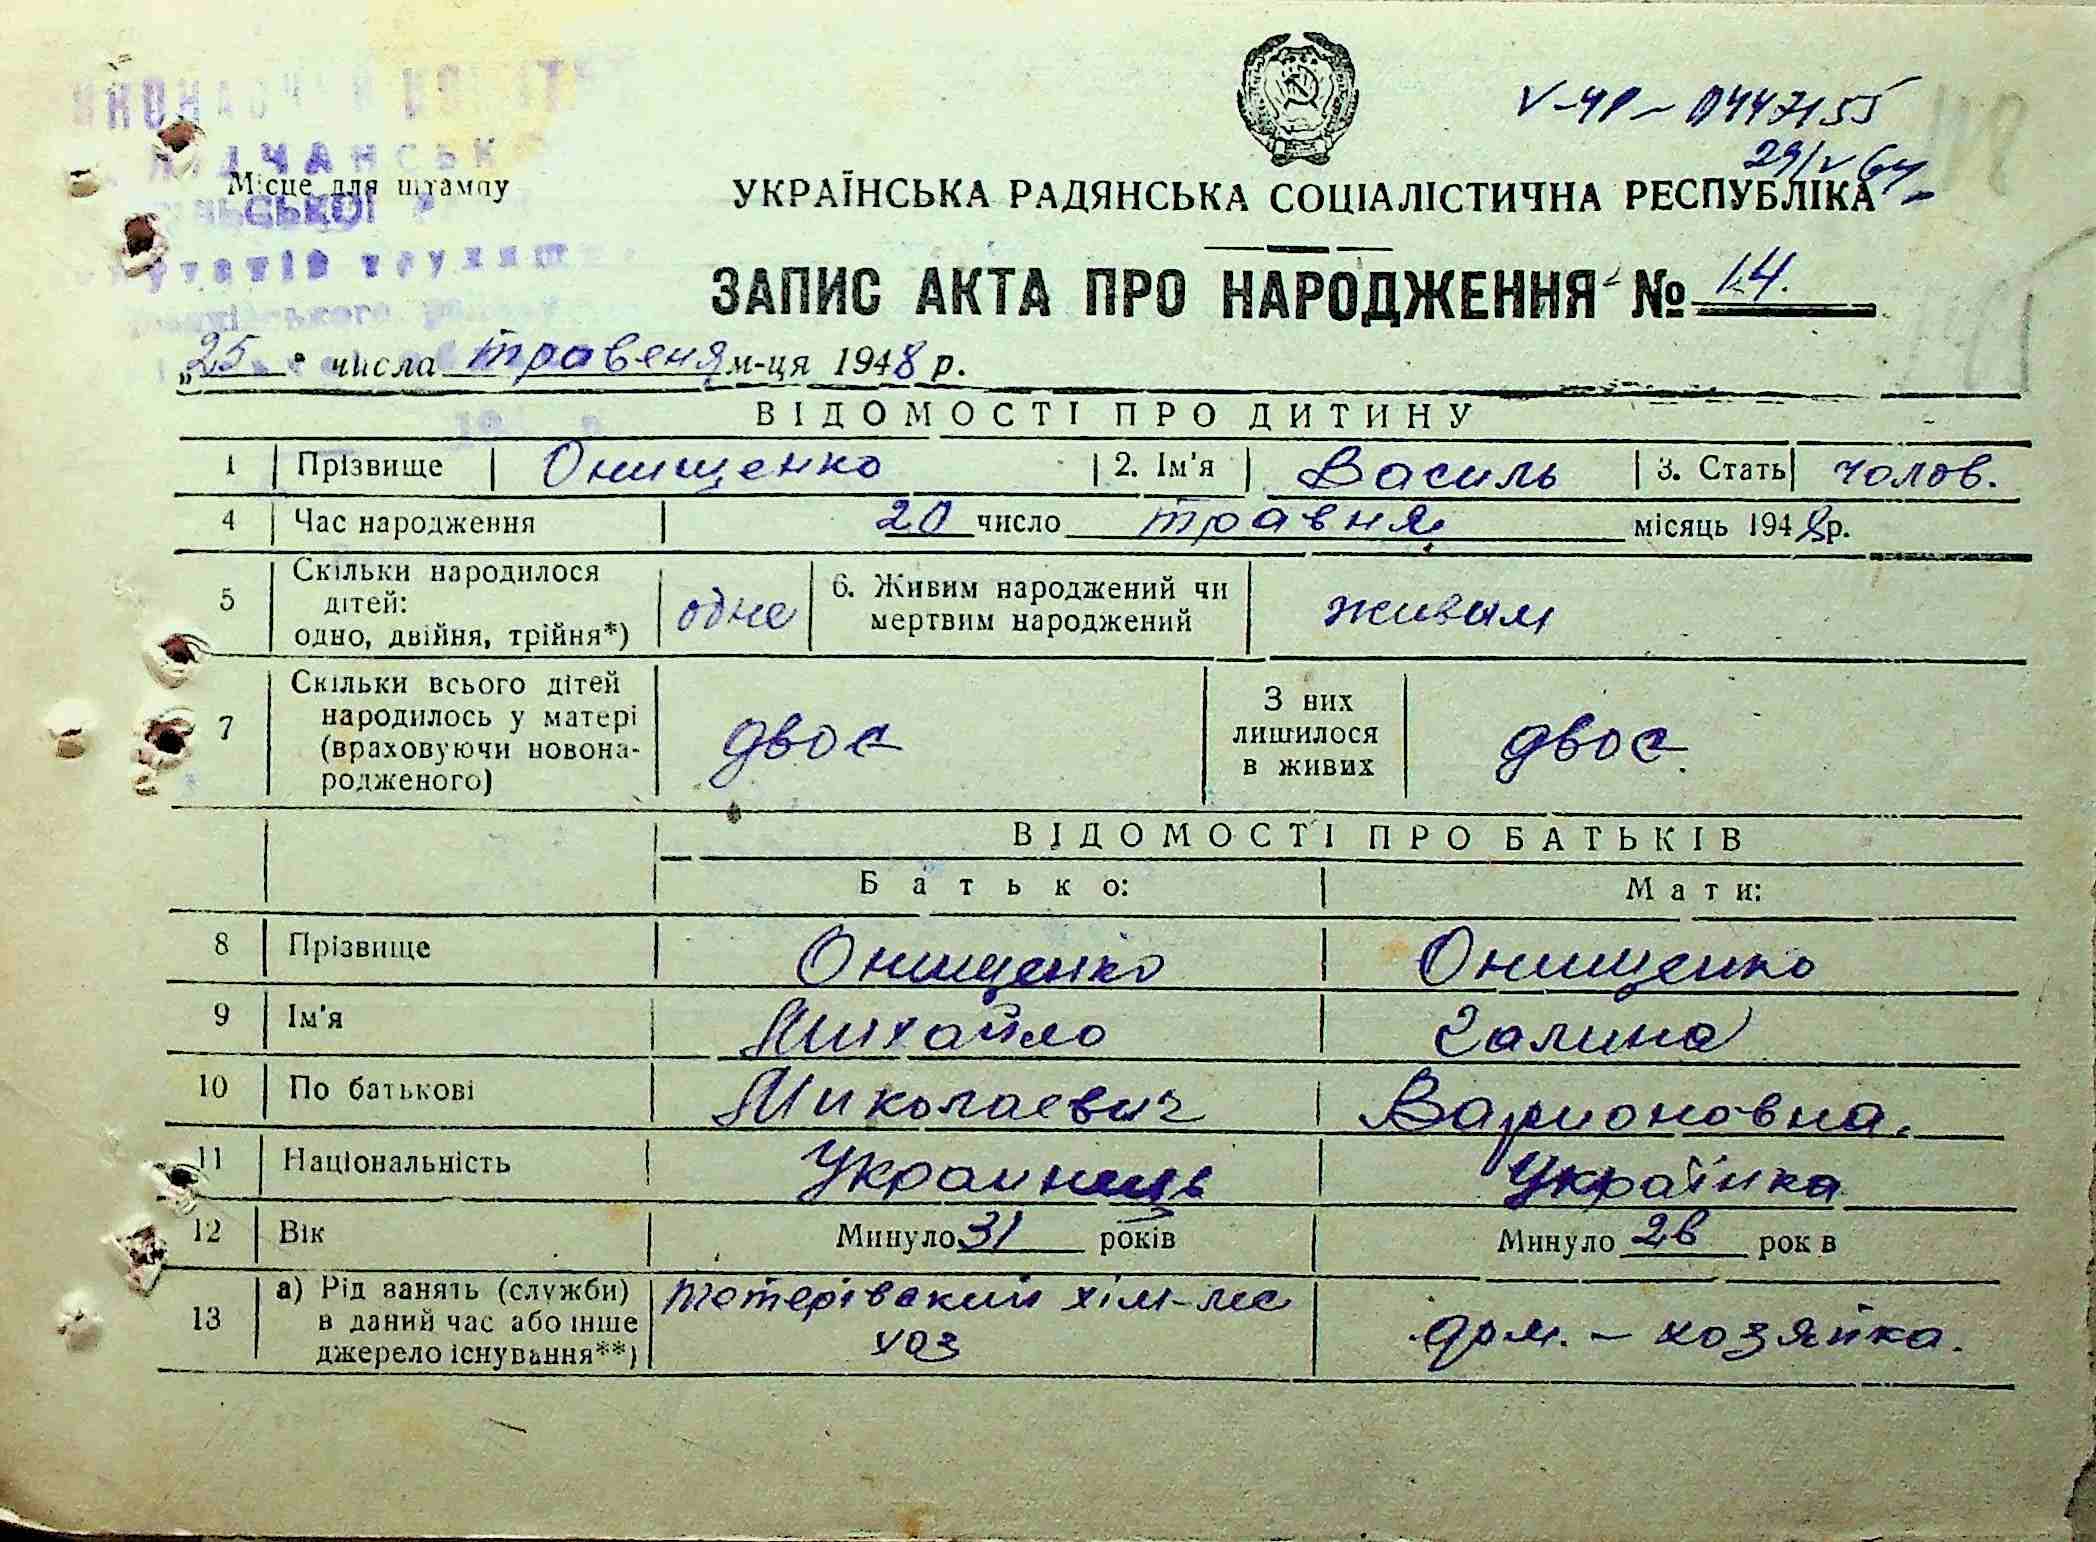 У-ЧР- 0447155
29/V 64
Місце для штампу
СЬКОЇ
УКРАЇНСЬКА РАДЯНСЬКА СОЦІАЛІСТИЧНА РЕСПУБЛІКА
ЗАПИС АКТА ПРО НАРОДЖЕННЯ № 14.
„25" числа травеня м-ця 1948 р.
ВІДОМОСТІ ПРО ДИТИНУ
1 Прізвище Онищенко 2. Ім'я Василь 3. Стать чолов.
4 Час народження 20 число травня місяць 1948 р.
5 Скільки народилося
дітей:
одно, двійня, трійня*) одне
6. Живим народжений чи
мертвим народжений живым
7 Скільки всього дітей
народилось у матері
(враховуючи новона-
родженого) двоє
З них
лишилося
в живих двоє.
ВІДОМОСТІ ПРО БАТЬКІВ
Батько: Мати:
8 Прізвище Онищенко Онищенко
9 Ім'я Михайло Галина
10 По батькові Миколаевич Варионовна.
11 Національність Украинець Українка
12 Вік Минуло 31 років Минуло 26 рок в
13 а) Рід занять (служби)
в даний час або інше
джерело існування**)
тетерівский хім-лес
хоз
дом. - хозяйка.